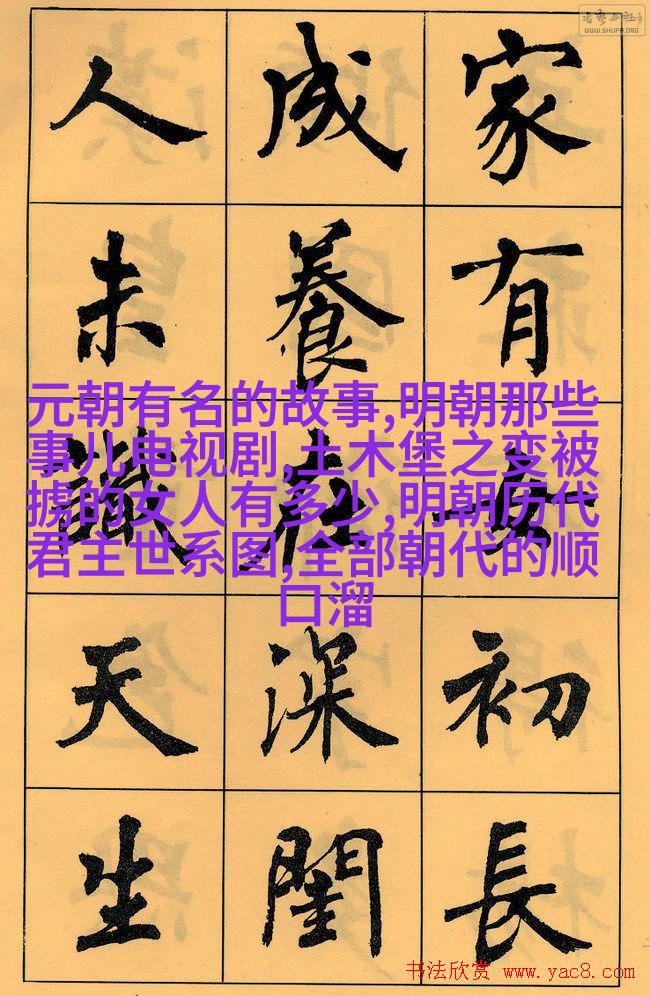 WWW.SHUFA.ORG
家有女初長
成養在深閨
人未識天生
元朝有名的故事,明朝那些
事儿电视剧,土木堡之变被
掳的女人有多少,明朝历代
君主世系图,全部朝代的顺
口溜
书法欣赏 www.yac8.com